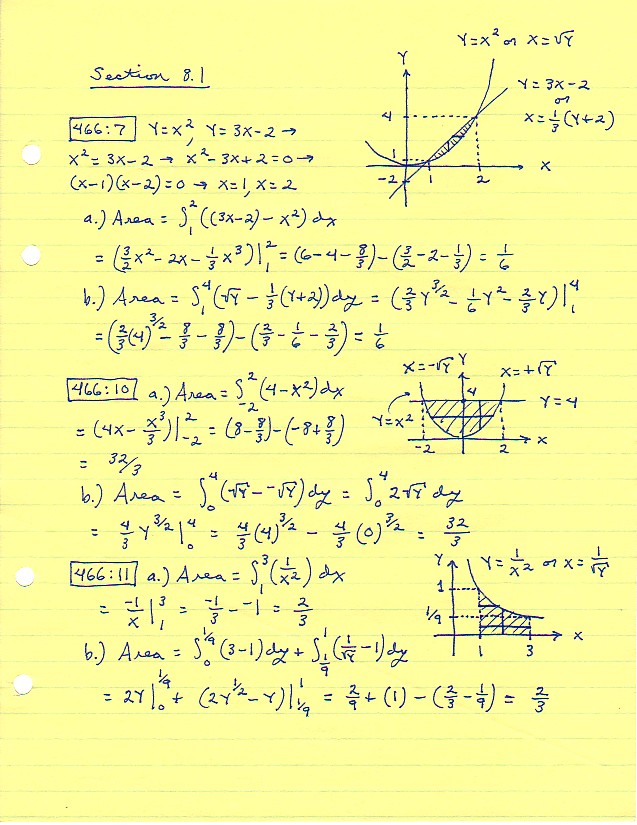 Section 8.1
Y=x² or x=√Y
Y
Y=3x-2
or
x=⅓(Y+2)
4
1
-2
1
2
x
466:7 Y=x², Y=3x-2 →
x²=3x-2 → x²-3x+2=0 →
(x-1)(x-2)=0 → x=1, x=2
a.) Area = ∫₁² ((3x-2)-x²)dx
= (3/2 x² - 2x - 1/3 x³)|₁² = (6-4-8/3)-(3/2-2-1/3) = 1/6
b.) Area = ∫₁⁴ (√Y - 1/3(Y+2))dy = (2/3 Y^3/2 - 1/6 Y² - 2/3 Y)|₁⁴
= (2/3(4)^3/2 - 8/3 - 8/3)-(2/3 - 1/6 - 2/3) = 1/6
466:10 a.) Area = ∫₋₂² (4-x²)dx
= (4x - x³/3)|₋₂² = (8-8/3)-(-8+8/3)
= 32/3
x=-√Y
Y
x=+√Y
4
Y=4
Y=x²
-2
2
x
b.) Area = ∫₀⁴ (√Y - -√Y)dy = ∫₀⁴ 2√Y dy
= 4/3 Y^3/2|₀⁴ = 4/3(4)^3/2 - 4/3(0)^3/2 = 32/3
466:11 a.) Area = ∫₁³ (1/x²) dx
= -1/x|₁³ = -1/3 - -1 = 2/3
Y
Y=1/x² or x=1/√Y
1
1/9
1
3
x
b.) Area = ∫₀^1/9 (3-1)dy + ∫_1/9^1 (1/√Y - 1)dy
= 2Y|₀^1/9 + (2Y^1/2 - Y)|_1/9^1 = 2/9 + (1) - (2/3 - 1/9) = 2/3